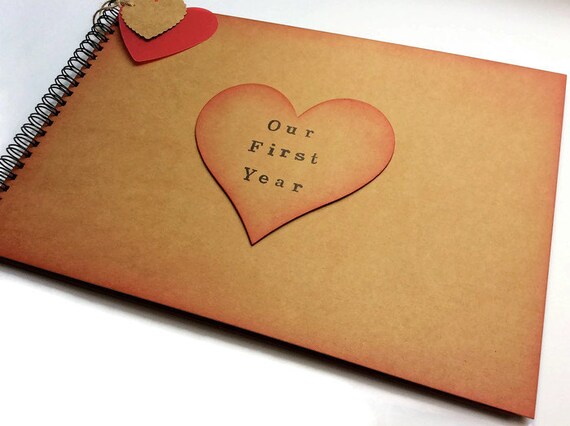 Our
First
Year